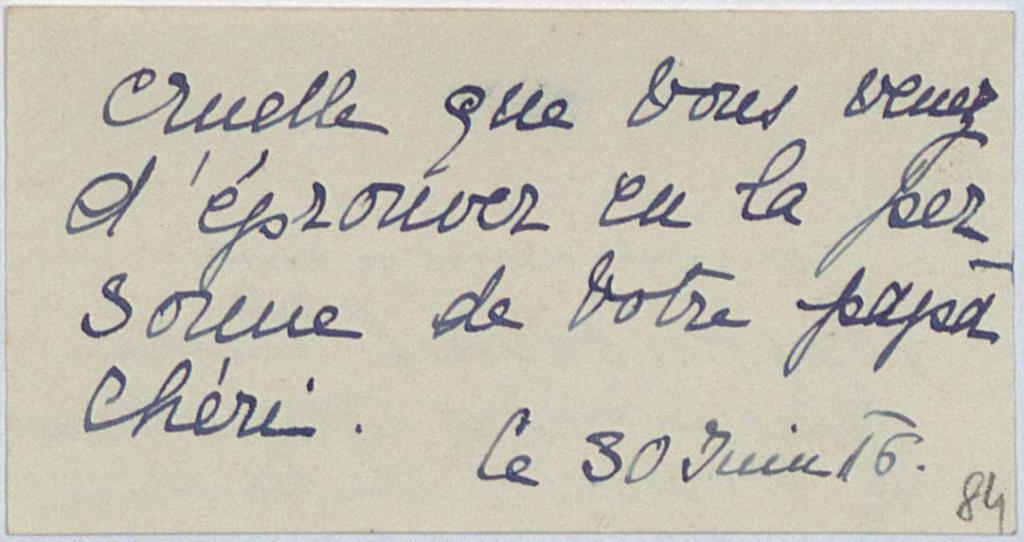 cruelle que vous venez
d'éprouver en la per-
sonne de votre papa
chéri.
le 30 Juin 16.
84